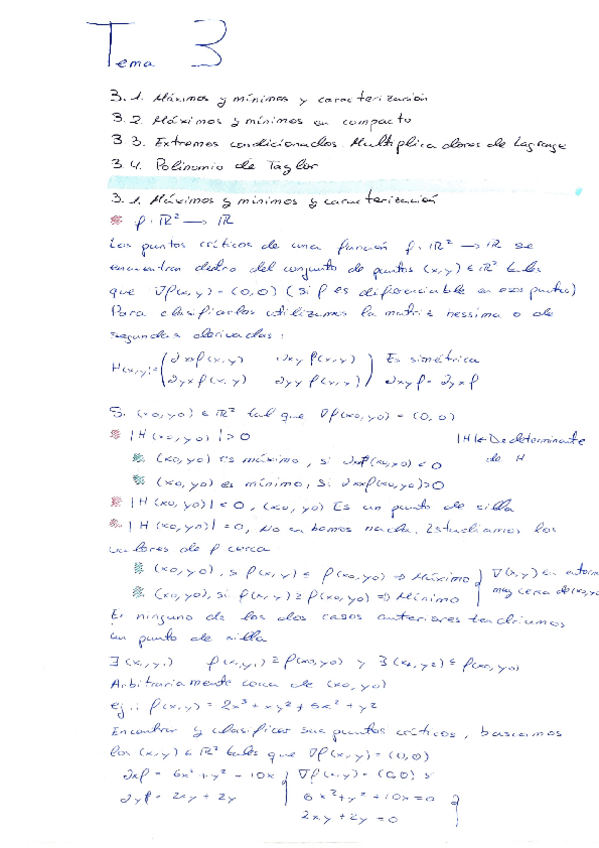 Tema 3
3.1. Máximos y mínimos y caracterización
3.2. Máximos y mínimos en compacto
3 3. Extremos condicionados. Multiplicadores de Lagrange
3.4. Polinomio de Taylor
3.1. Máximos y mínimos y caracterización
f: ℝ² → ℝ
Los puntos críticos de una función f: ℝ² → ℝ se
encuentran dentro del conjunto de puntos (x,y) ∈ ℝ² tales
que ∇f(x,y) = (0,0) (si f es diferenciable en esos puntos)
Para clasificarlos utilizamos la matriz hessiana o de
segundas derivadas:
H(x,y) = (∂xxf(x,y) ∂xyf(x,y)) Es simétrica
(∂yxf(x,y) ∂yyf(x,y)) ∂xyf = ∂yxf
Si (x0,y0) ∈ ℝ² tal que ∇f(x0,y0) = (0,0)
|H(x0,y0)| > 0 |H| ← Determinante
de H
(x0,y0) es máximo, si ∂xxf(x0,y0) < 0
(x0,y0) es mínimo, si ∂xxf(x0,y0) > 0
|H(x0,y0)| < 0, (x0,y0) Es un punto de silla
|H(x0,y0)| = 0, No sabemos nada. Estudiamos los
valores de f cerca
(x0,y0), si f(x,y) ≤ f(x0,y0) ⇒ Máximo } ∇(x,y) en entorno
(x0,y0), si f(x,y) ≥ f(x0,y0) ⇒ Mínimo } muy cerca de (x0,y0)
En ninguno de los dos casos anteriores tendríamos
un punto de silla
∃(x1,y1) f(x1,y1) ≥ f(x0,y0) y ∃(x2,y2) ≤ f(x0,y0)
Arbitrariamente cerca de (x0,y0)
ej.: f(x,y) = 2x³ + xy² + 5x² + y²
Encontrar y clasificar sus puntos críticos, buscamos
los (x,y) ∈ ℝ² tales que ∇f(x,y) = (0,0)
∂xf = 6x² + y² - 10x } ∇f(x,y) = (0,0) si
∂yf = 2xy + 2y } 6x² + y² + 10x = 0 }
2xy + 2y = 0